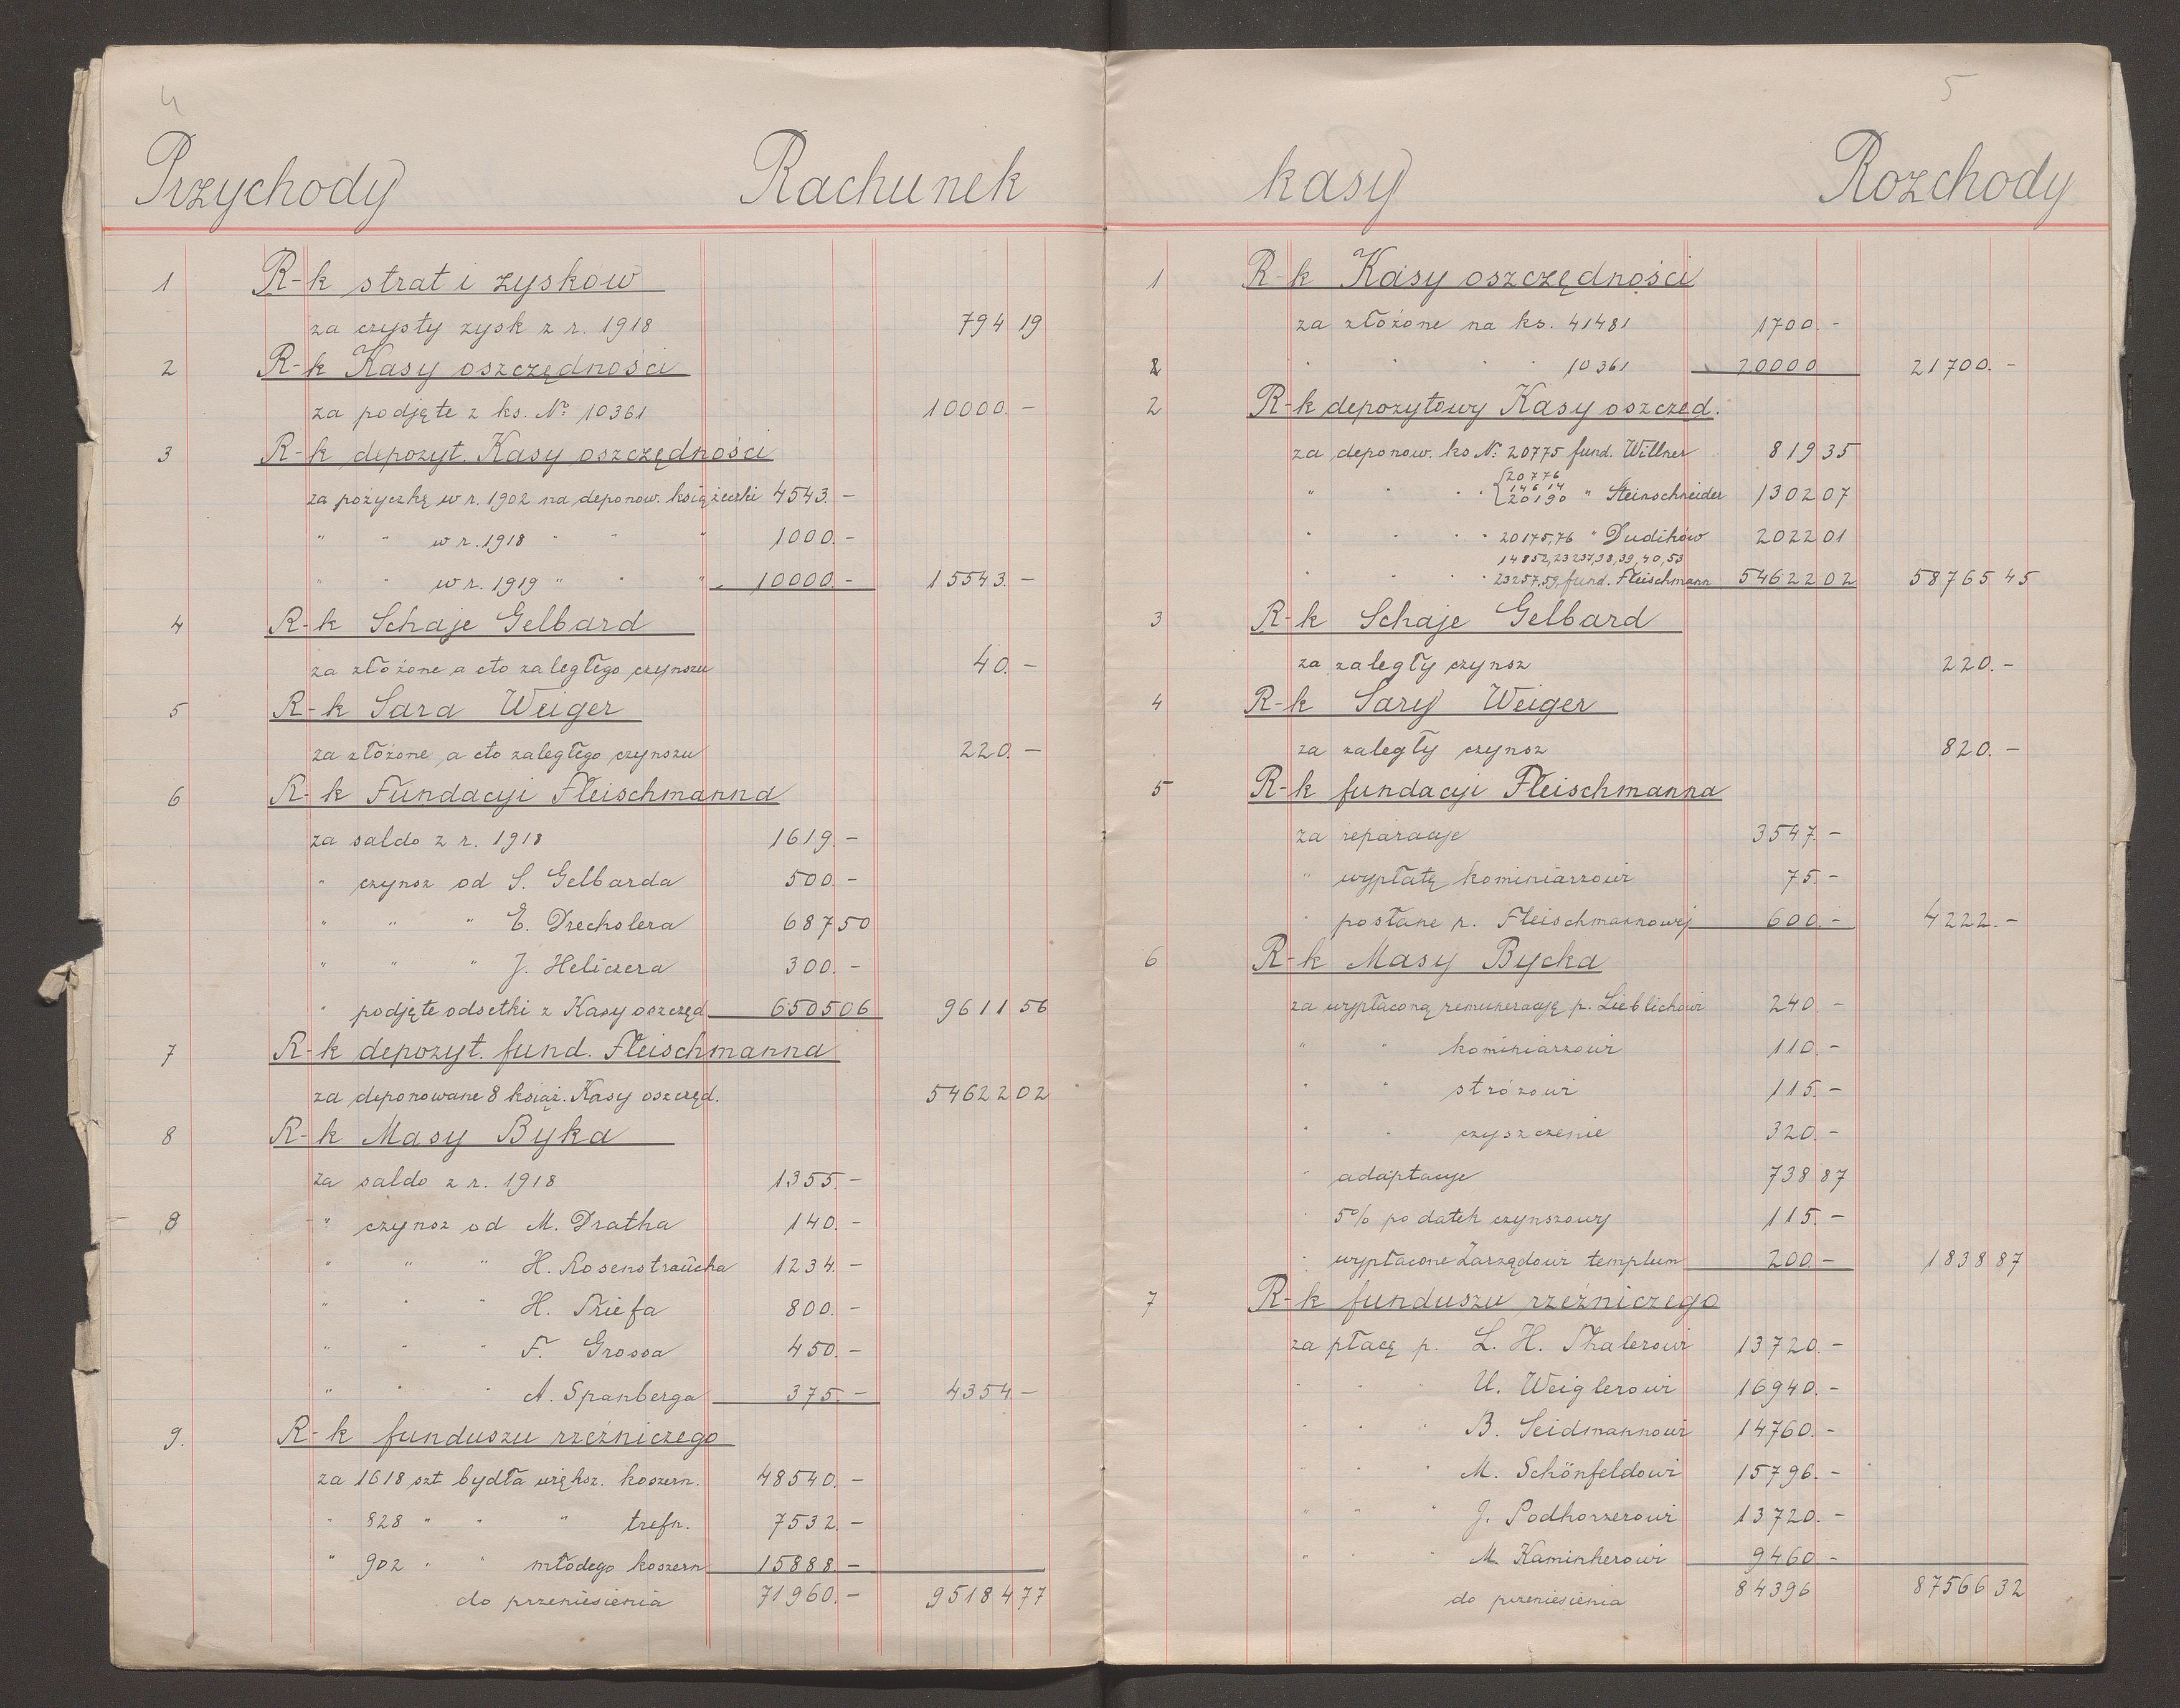 4
Przychody Rachunek
1 R-k strat i zyskow
za czysty zysk z r. 1918 794 19
2 R-k Kasy oszczędności
za podjęte z ks. No 10361 10000.-
3 R-k depozyt. Kasy oszczędności
za pożyczkę w r. 1902 na deponow. książeczki 4543.-
" " w r. 1918 " " " 1000.-
" " w r. 1919 " " " 10000.- 15543.-
4 R-k Schaje Gelbard
za złożone a cto zaległego czynszu 40.-
5 R-k Sara Weiger
za złożone a cto zaległego czynszu 220.-
6 R-k Fundacyi Fleischmanna
za saldo z r. 1918 1619.-
" czynsz od S. Gelbarda 500.-
" " " E. Drechslera 687 50
" " " J. Heliczera 300.-
" podjęte odsetki z Kasy oszczęd. 6505 06 9611 56
7 R-k depozyt. fund. Fleischmanna
za deponowane 8 książ. Kasy oszczęd. 54622 02
8 R-k Masy Byka
za saldo z r. 1918 1355.-
8 " czynsz od M. Dratha 140.-
" " " H. Rosenstraucha 1234.-
" " " H. Striefa 800.-
" " " F. Grossa 450.-
" " " A. Spanberga 375.- 4354.-
9. R-k funduszu rzeźniczego
za 1618 szt bydła większ. koszern. 48540.-
" 828 " " " trefn. 7532.-
" 902 " " młodego koszern 15888.-
do przeniesienia 71960.- 95184 77
5
kasy Rozchody
1 R-k Kasy oszczędności
za złożone na ks. 41481 1700.-
2 " " " " 10361 20000 21700.-
2 R-k depozytowy Kasy oszczęd.
za deponow. ks No: 20775 fund. Willner 819 35
" " " " {20776 14614 20190 " Steinschneider 1302 07
" " " " 20175,76 " Dudików 2022 01
14852, 23237,38,39,40,53
" " " " 23257,59, fund. Fleischmann 54622 02 58765 45
3 R-k Schaje Gelbard
za zaległy czynsz 220.-
4 R-k Sary Weiger
za zaległy czynsz 820.-
5 R-k fundacyi Fleischmanna
za reparacye 3547.-
" wypłatę kominiarzowi 75.-
" posłane p. Fleischmannowej 600.- 4222.-
6 R-k Masy Bycka
za wypłaconą remuneracyę p. Lieblichowi 240.-
" " kominiarzowi 110.-
" " stróżowi 115.-
" " czyszczenie 320.-
" adaptacye 738 87
" 5% podatek czynszowy 115.-
" wypłacone Zarządowi templum 200.- 1838 87
7 R-k funduszu rzeźniczego
za płacę p. L. H. Thalerowi 13720.-
" " " U. Weiglerowi 16940.-
" " " B. Seidmannowi 14760.-
" " " M. Schönfeldowi 15796.-
" " " J. Podhorzerowi 13720.-
" " " M. Kaminkerowi 9460.-
do przeniesienia 84396 87566 32